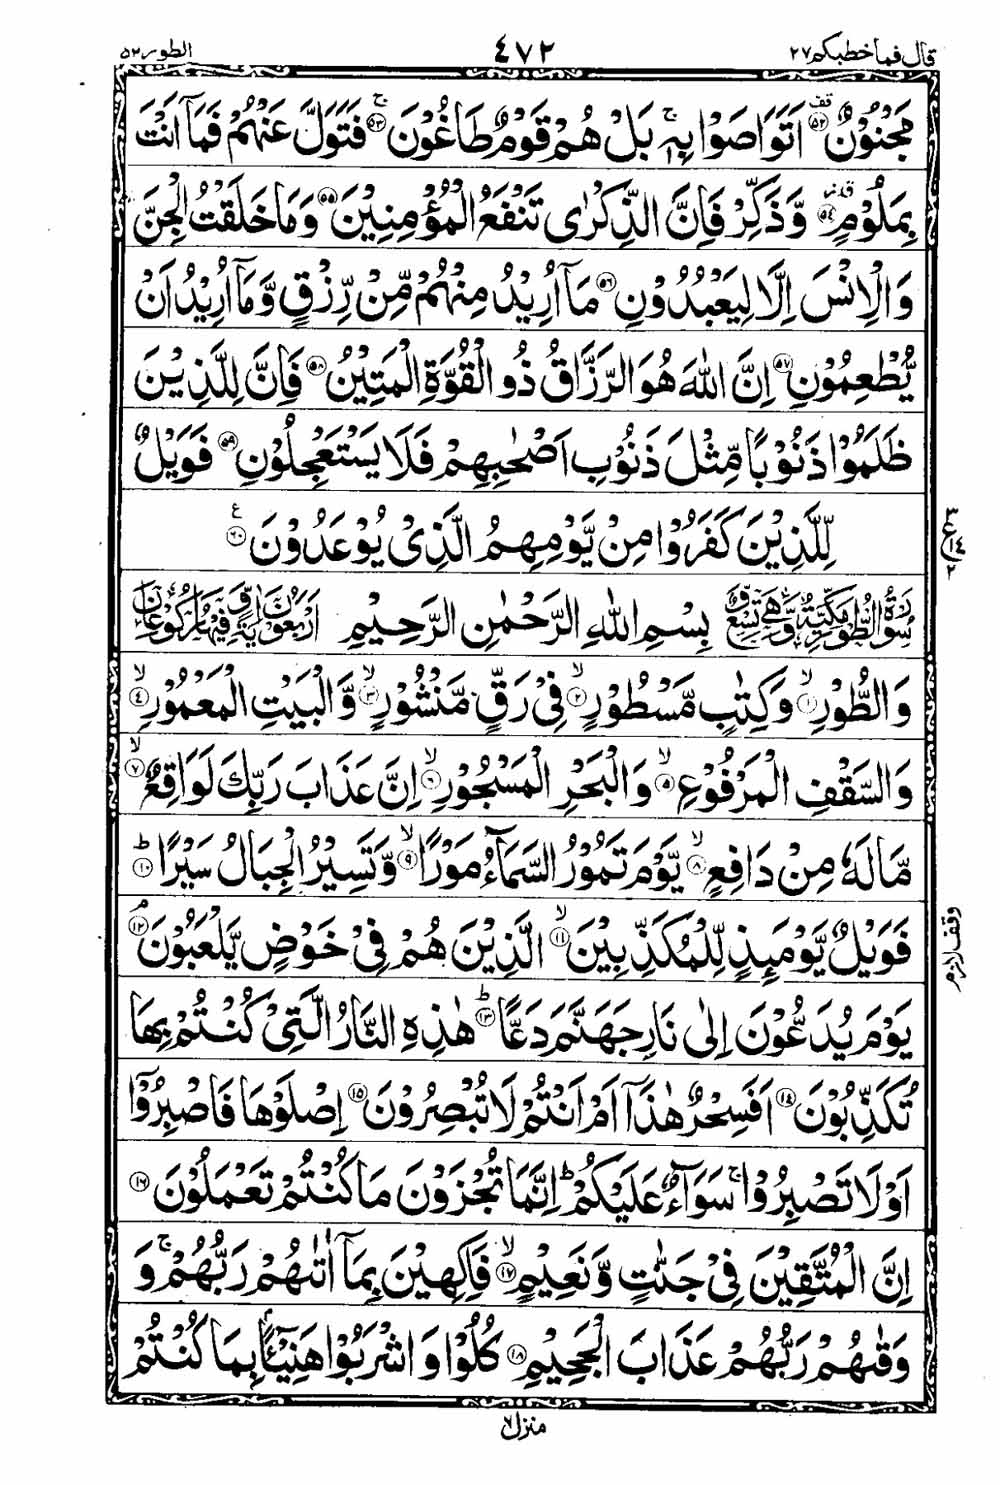 قال فما خطبكم ٢٧
٤٧٢
الطور ٥٢
مَجْنُوْنٌ ۝٥٢ اَتَوَاصَوْا بِهٖ ۚ بَلْ هُمْ قَوْمٌ طَاغُوْنَ ۝٥٣ فَتَوَلَّ عَنْهُمْ فَمَاۤ اَنْتَ
بِمَلُوْمٍ ۝٥٤ وَّذَكِّرْ فَاِنَّ الذِّكْرٰى تَنْفَعُ الْمُؤْمِنِيْنَ ۝٥٥ وَمَا خَلَقْتُ الْجِنَّ
وَالْاِنْسَ اِلَّا لِيَعْبُدُوْنِ ۝٥٦ مَاۤ اُرِيْدُ مِنْهُمْ مِّنْ رِّزْقٍ وَّمَاۤ اُرِيْدُ اَنْ
يُّطْعِمُوْنِ ۝٥٧ اِنَّ اللّٰهَ هُوَ الرَّزَّاقُ ذُو الْقُوَّةِ الْمَتِيْنُ ۝٥٨ فَاِنَّ لِلَّذِيْنَ
ظَلَمُوْا ذَنُوْبًا مِّثْلَ ذَنُوْبِ اَصْحٰبِهِمْ فَلَا يَسْتَعْجِلُوْنِ ۝٥٩ فَوَيْلٌ
لِّلَّذِيْنَ كَفَرُوْا مِنْ يَّوْمِهِمُ الَّذِىْ يُوْعَدُوْنَ ۝٦٠
٣ ع ١٤ ٢
سُوْرَةُ الطُّوْرِ مَكِّيَّةٌ وَّهِىَ تِسْعٌ وَّ بِسْمِ اللّٰهِ الرَّحْمٰنِ الرَّحِيْمِ اَرْبَعُوْنَ اٰيَةً وَّفِيْهَا رُكُوْعَانِ
وَالطُّوْرِ ۙ۝١ وَكِتٰبٍ مَّسْطُوْرٍ ۙ۝٢ فِىْ رَقٍّ مَّنْشُوْرٍ ۙ۝٣ وَّالْبَيْتِ الْمَعْمُوْرِ ۙ۝٤
وَالسَّقْفِ الْمَرْفُوْعِ ۙ۝٥ وَالْبَحْرِ الْمَسْجُوْرِ ۙ۝٦ اِنَّ عَذَابَ رَبِّكَ لَوَاقِعٌ ۙ۝٧
مَّا لَهٗ مِنْ دَافِعٍ ۙ۝٨ يَّوْمَ تَمُوْرُ السَّمَآءُ مَوْرًا ۙ۝٩ وَّتَسِيْرُ الْجِبَالُ سَيْرًا ؕ۝١٠
فَوَيْلٌ يَّوْمَئِذٍ لِّلْمُكَذِّبِيْنَ ۙ۝١١ الَّذِيْنَ هُمْ فِىْ خَوْضٍ يَّلْعَبُوْنَ ۘ۝١٢
وقف لازم
يَوْمَ يُدَعُّوْنَ اِلٰى نَارِ جَهَنَّمَ دَعًّا ؕ۝١٣ هٰذِهِ النَّارُ الَّتِىْ كُنْتُمْ بِهَا
تُكَذِّبُوْنَ ۝١٤ اَفَسِحْرٌ هٰذَاۤ اَمْ اَنْتُمْ لَا تُبْصِرُوْنَ ۝١٥ اِصْلَوْهَا فَاصْبِرُوْۤا
اَوْ لَا تَصْبِرُوْا ۚ سَوَآءٌ عَلَيْكُمْ ؕ اِنَّمَا تُجْزَوْنَ مَا كُنْتُمْ تَعْمَلُوْنَ ۝١٦
اِنَّ الْمُتَّقِيْنَ فِىْ جَنّٰتٍ وَّنَعِيْمٍ ۙ۝١٧ فٰكِهِيْنَ بِمَاۤ اٰتٰىهُمْ رَبُّهُمْ ۚ وَ
وَقٰىهُمْ رَبُّهُمْ عَذَابَ الْجَحِيْمِ ۝١٨ كُلُوْا وَاشْرَبُوْا هَنِيْٓئًا ۢبِمَا كُنْتُمْ
منزل ٧